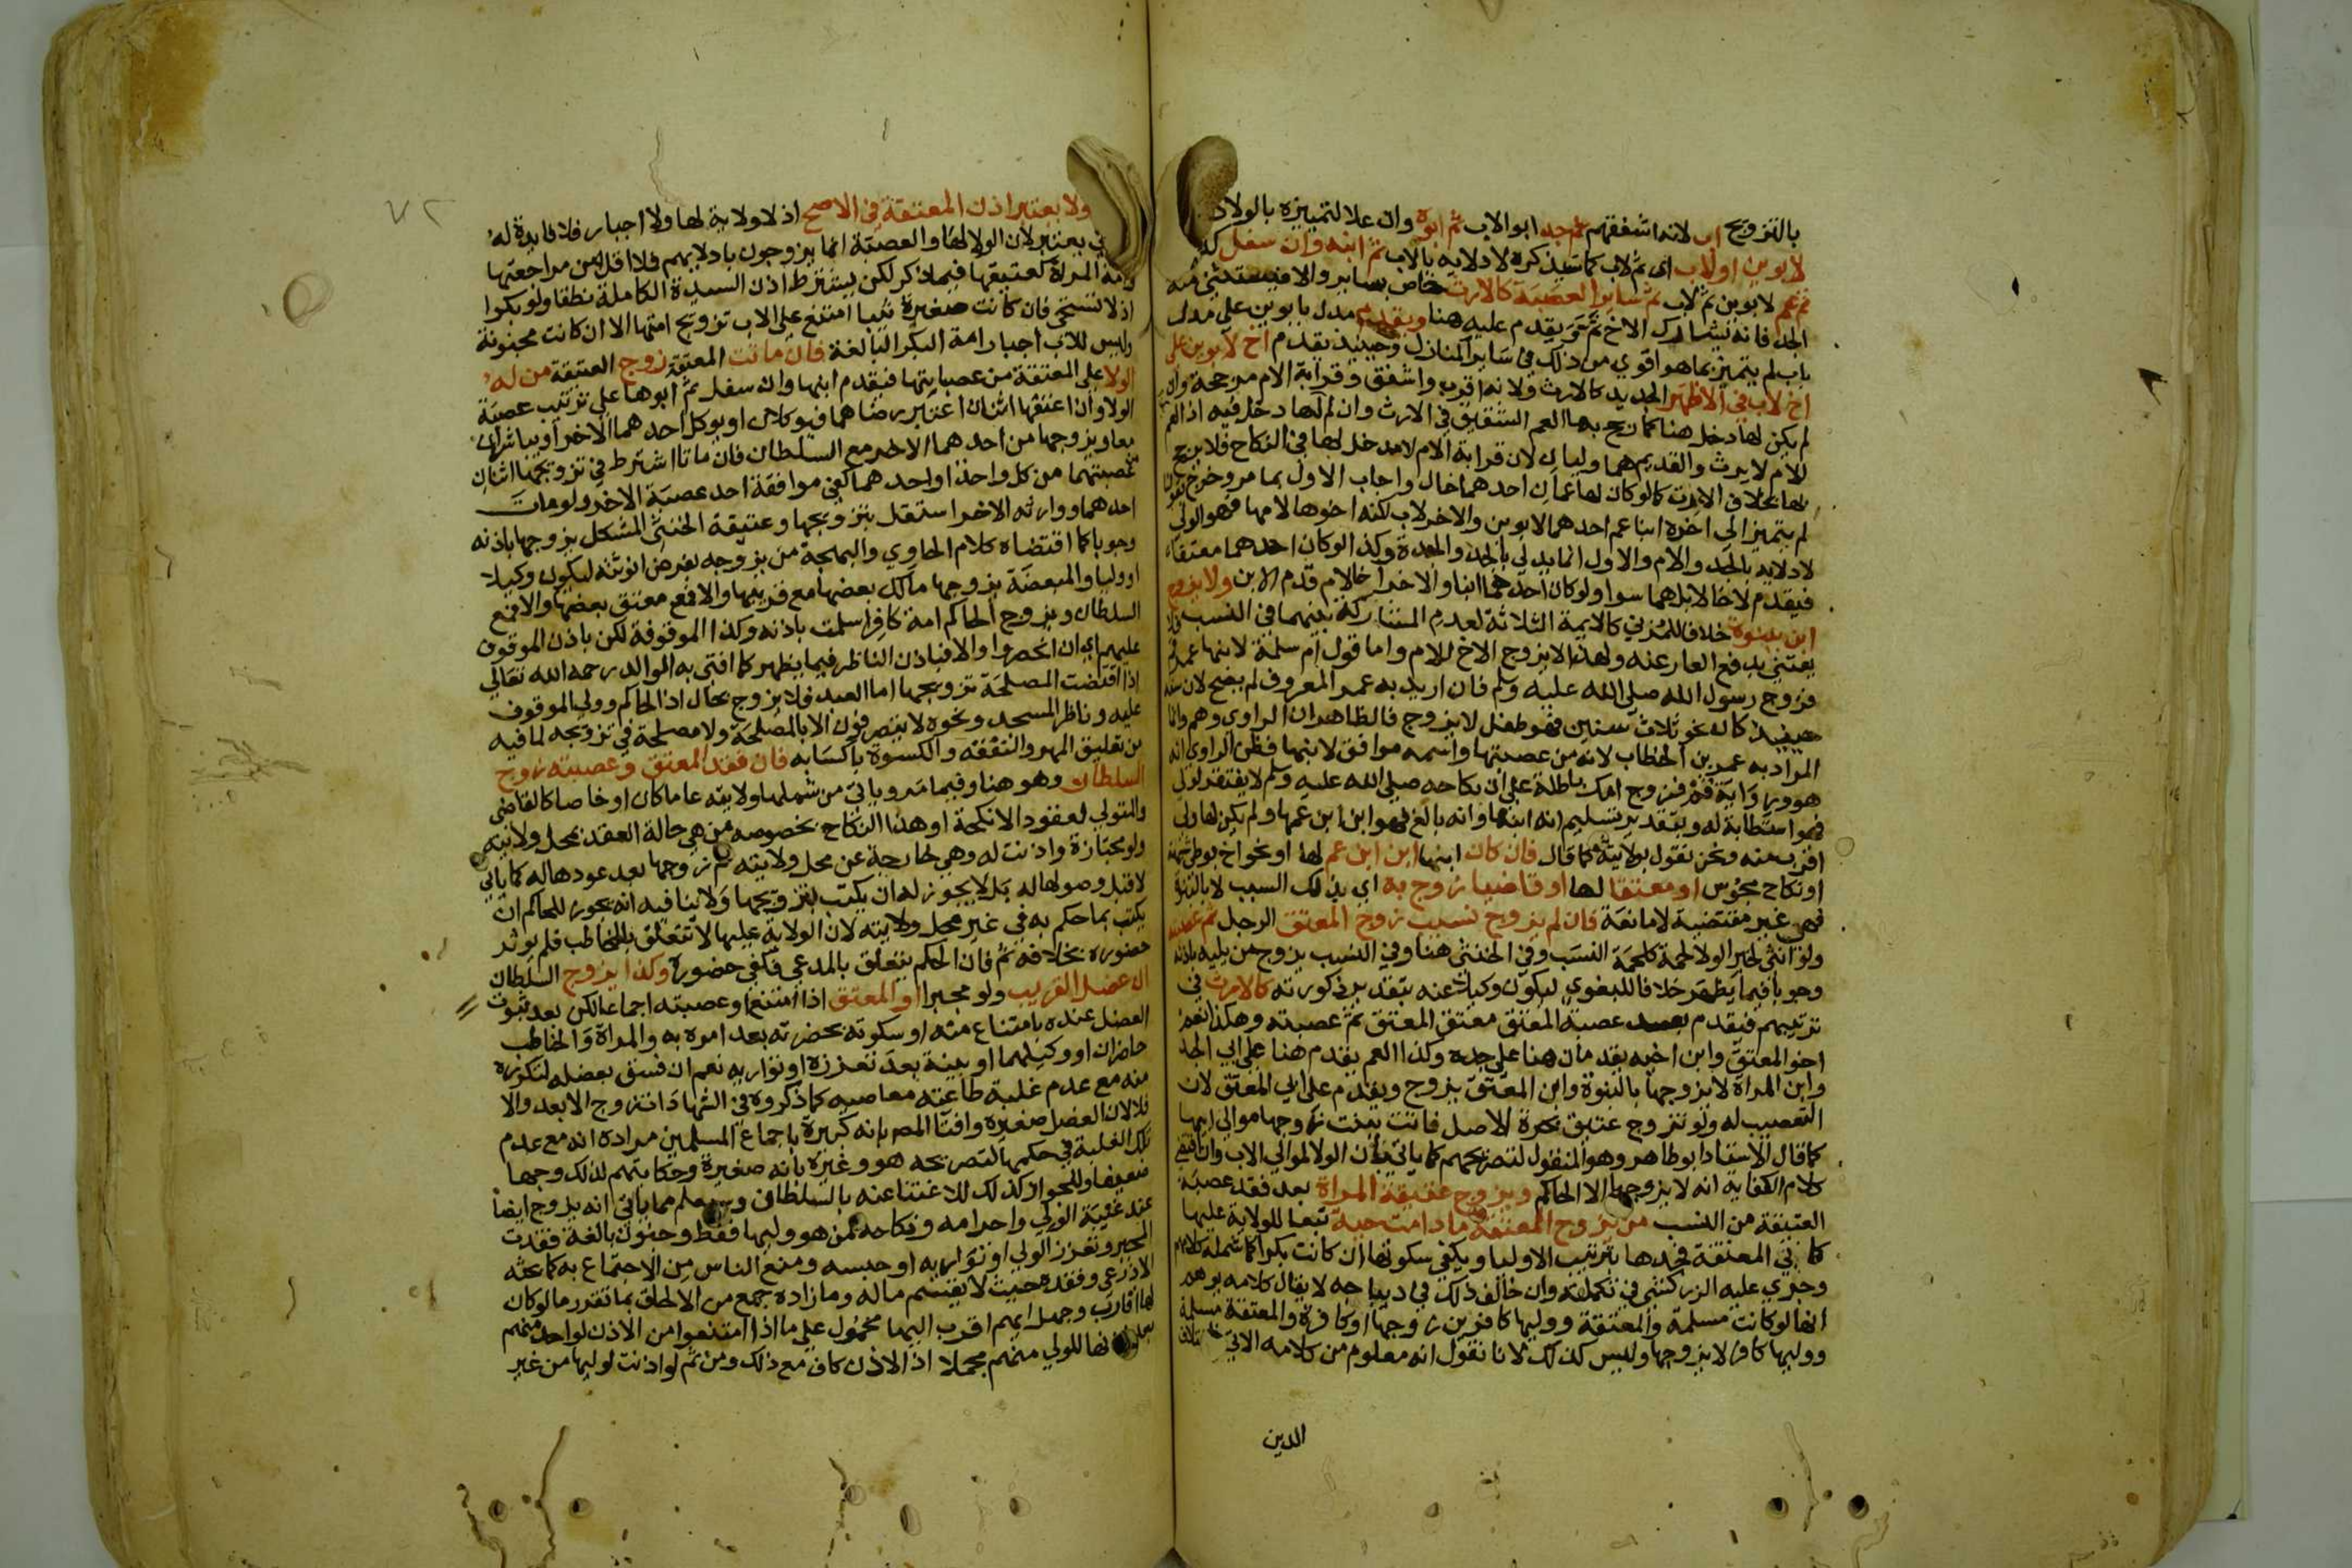 بالتزويج اب لانه اشفقهم ثم جد ابو الاب ثم ابوه وان علا لتميزه بالولادة
لابوين او لاب اى ثم لاب كما سيذكره لادلايه بالاب ثم ابنه وان سفل كذ
ثم عم لابوين ثم لاب ثم ساير العصبة كالارث خاص بساير والا فيستثنى منه
الجد فانه يشارك الاخ ثم يقدم عليه هنا ويقدم مدل بابوين على مدل
باب لم يتميز بما هو اقوي من ذلك في ساير المنازل وحينيذ يقدم اخ لابوين على
اخ لاب في الاظهر الجديد كالارث ولانه اقرب واشفق وقرابة الام مرجحة وان
لم يكن لها دخل هنا كما رجح بها العم الشقيق في الارث وان لم لها دخل فيه اذ العم
للام لا يرث والقديم هما وليان لان قرابة الام لا مدخل لها في النكاح فلا يرجح
بها بخلاف الارث كالو كان لها عمان احدهما خال واجاب الاول بما مر وخرج
لم يتميز الى اخره ابنا عم احدهما لابوين والاخر لاب لكنه اخوها لامها فهو الولى
لادلايه بالجد والام والاول انما يدلي بالجد والجدة وكذا لو كان احدهما معتقا
فيقدم لاخالا بل هما سوا ولو كان احدهما ابنا والاخر اخا لام قدم الابن ولا يزوج
ابن ببنوة خلافا للمزني كالايمة الثلاثة لعدم المشاركة بينهما في النسب فلا
يعتني بدفع العار عنه ولهذا لا يزوج الاخ للام واما قول ام سلمة لابنها عمر قم
فزوج رسول الله صلى الله عليه وسلم فان اريد به عمر المعروف لم يصح لان سنه
حينيذ كان نحو ثلاث سنين فهو طفل لا يزوج فالظاهر ان الراوي وهم وانما
المراد به عمر بن الخطاب لانه من عصبتها واسمه موافق لابنها فظن الراوي انه
هو ورواية قم فزوج امك باطلة على ان نكاحه صلى الله عليه وسلم لا يفتقر لولى
فهو استطابة له وبتقدير تسليم انه ابنها وانه بالغ فهو ابن ابن عمها ولم يكن لها ولى
اقرب منه ونحن نقول بولايته كما قال فان كان ابنها ابن ابن عم لها او نحو اخ بوطى شبهة
او نكاح مجوس او معتقا لها او قاضيا زوج به اي بذلك السبب لا بالبنوة
فهي غير مقتضية لا مانعة فان لم يزوج نسيب زوج المعتق الرجل ثم عصبته
ولو انثى لخبر الولا لحمة كلحمة النسب وفي الخنثى هنا وفي النسيب يزوج من يليه باذنه
وجوبا فيما يظهر خلافا للبغوي ليكون وكيلا عنه بتقدير ذكورته كالارث في
ترتيبهم فيقدم بعد عصبة المعتق معتق المعتق ثم عصبته وهكذا نعم
اخو المعتق وابن اخيه يقدمان هنا على جده وكذا العم يقدم هنا على ابي الجد
وابن المراة لا يزوجها بالبنوة وابن المعتق يزوج ويقدم على ابي المعتق لان
التعصيب له ولو تزوج عتيق بحرة الاصل فاتت ببنت زوجها موالى ابيها
كما قال الاستاد ابو طاهر وهو المنقول لتصريحهم كما ياتي بان الولا لموالي الاب وان اقتضى
كلام الكفاية انه لا يزوجها الا الحاكم ويزوج عتيقة المراة بعد فقد عصبة
العتيقة من النسب من يزوج المعتقة ما دامت حية تبعا للولاية عليها
كابي المعتقة فجدها بترتيب الاوليا ويكفي سكوتها ان كانت بكرا كما شمله كلامهم
وجري عليه الزركشي في تكملته وان خالف ذلك في ديباجه لا يقال كلامه يوهم
انها لو كانت مسلمة والمعتقة ووليها كافرين زوجها او كافرة والمعتقة مسلمة
ووليها كافر لا يزوجها وليس كذلك لانا نقول انه معلوم من كلامه الاتي
الدين
٧٢
ولا يعتبر اذن المعتقة في الاصح اذ لا ولاية لها ولا اجبار فلا فايدة له
يعتبر لان الولا لها والعصبة انما يزوجون بادلايهم فلا اقل من مراجعتها
وامة المراة كعتيقها فيما ذكر لكن يشترط اذن السيدة الكاملة نطقا ولو بكرا
اذ لا تستحي فان كانت صغيرة ثيبا امتنع على الاب تزويج امتها الا ان كانت مجنونة
وليس للاب اجبار امة البكر البالغة فان ماتت المعتقة زوج العتيقة من له
الولا على المعتقة من عصباتها فيقدم ابنها وان سفل ثم ابوها على ترتيب عصبة
الولا وان اعتقها اثنان اعتبر رضاهما فيوكلان او يوكل احدهما الاخر او يباشران
معا ويزوجها من احدهما الاخر مع السلطان فان ماتا اشترط في تزويجها اثنان
لعصبتهما من كل واحد او احدهما كفى موافقة احد عصبة الاخر ولو مات
احدهما ووارثه الاخر استقل بتزويجها وعتيقة الخنثى المشكل يزوجها باذنه
وجوبا كما اقتضاه كلام الحاوي والبهجة من يزوجه بفرض انوثته ليكون وكيلا
او وليا والمبعضة يزوجها مالك بعضها مع قريبها والا فمع معتق بعضها والا فمع
السلطان ويزوج الحاكم امة كافر اسلمت باذنه وكذا الموقوفة لكن باذن الموقوف
عليهم اي ان انحصروا والا فباذن الناظر فيما يظهر كما افتى به الوالد رحمه الله تعالى
اذا اقتضت المصلحة تزويجها اما العبد فلا يزوج بحال اذ الحاكم وولى الموقوف
عليه وناظر المسجد ونحوه لا يتصرفون الا بالمصلحة ولا مصلحة في تزويجه لما فيه
من تعليق المهر والنفقة والكسوة باكسابه فان فقد المعتق وعصبته زوج
السلطان وهو هنا وفيما مر وياتي من شملها ولايته عاما كان او خاصا كالقاضى
والمتولي لعقود الانكحة او هذا النكاح بخصوصه من هي حالة العقد بمحل ولايته
ولو مجتازة واذنت له وهي خارجة عن محل ولايته ثم زوجها بعد عودها له كما ياتي
لا قبل وصولها له بل لا يجوز له ان يكتب بتزويجها ولا ينافيه انه يجوز للحاكم ان
يكتب بما حكم به في غير محل ولايته لان الولاية عليها لا تتعلق بالخاطب فلم يوثر
حضوره بخلافه ثم فان الحكم يتعلق بالمدعي فكفى حضوره وكذا يزوج السلطان
ان عضل القريب ولو مجبرا او المعتق اذا امتنع او عصبته اجماعا لكن بعد ثبوت
العضل عنده بامتناع منه او سكوته بحضرته بعد امره به والمراة والخاطب
حاضران او وكيلهما او بينة بعد تعززه او تواريه نعم ان فسق بعضله لتكرره
منه مع عدم غلبة طاعته معاصيه كما ذكروه في الشهادات زوج الابعد والا
فلا لان العضل صغيرة وافتا المص بانه كبيرة باجماع المسلمين مراده انه مع عدم
تلك الغلبة في حكمها لتصريحه هو وغيره بانه صغيرة وحكايتهم لذلك وجها
ضعيفا وللجواز كذلك للاغتنا عنه بالسلطان وسيعلم مما ياتي انه يزوج ايضا
عند غيبة الولي واحرامه ونكاحه لمن هو وليها فقط وجنون بالغة فقدت
المجبر وتعزز الولي او تواريه او حبسه ومنع الناس من الاجتماع به كما بحثه
الاذرعي وفقده حيث لا يقسم ماله وما زاده جمع من الالحاق بما تقرر ما لو كان
لها اقارب وجهل ايهم اقرب اليها محمول على ما اذا امتنعوا من الاذن لواحد منهم
نها للولي منهم مجملا اذ الاذن كاف مع ذلك ومن ثم لو اذنت لوليها من غير